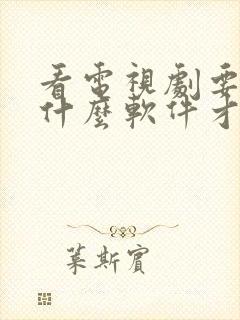 看電視劇要
什麼軟件才
葉斯賓